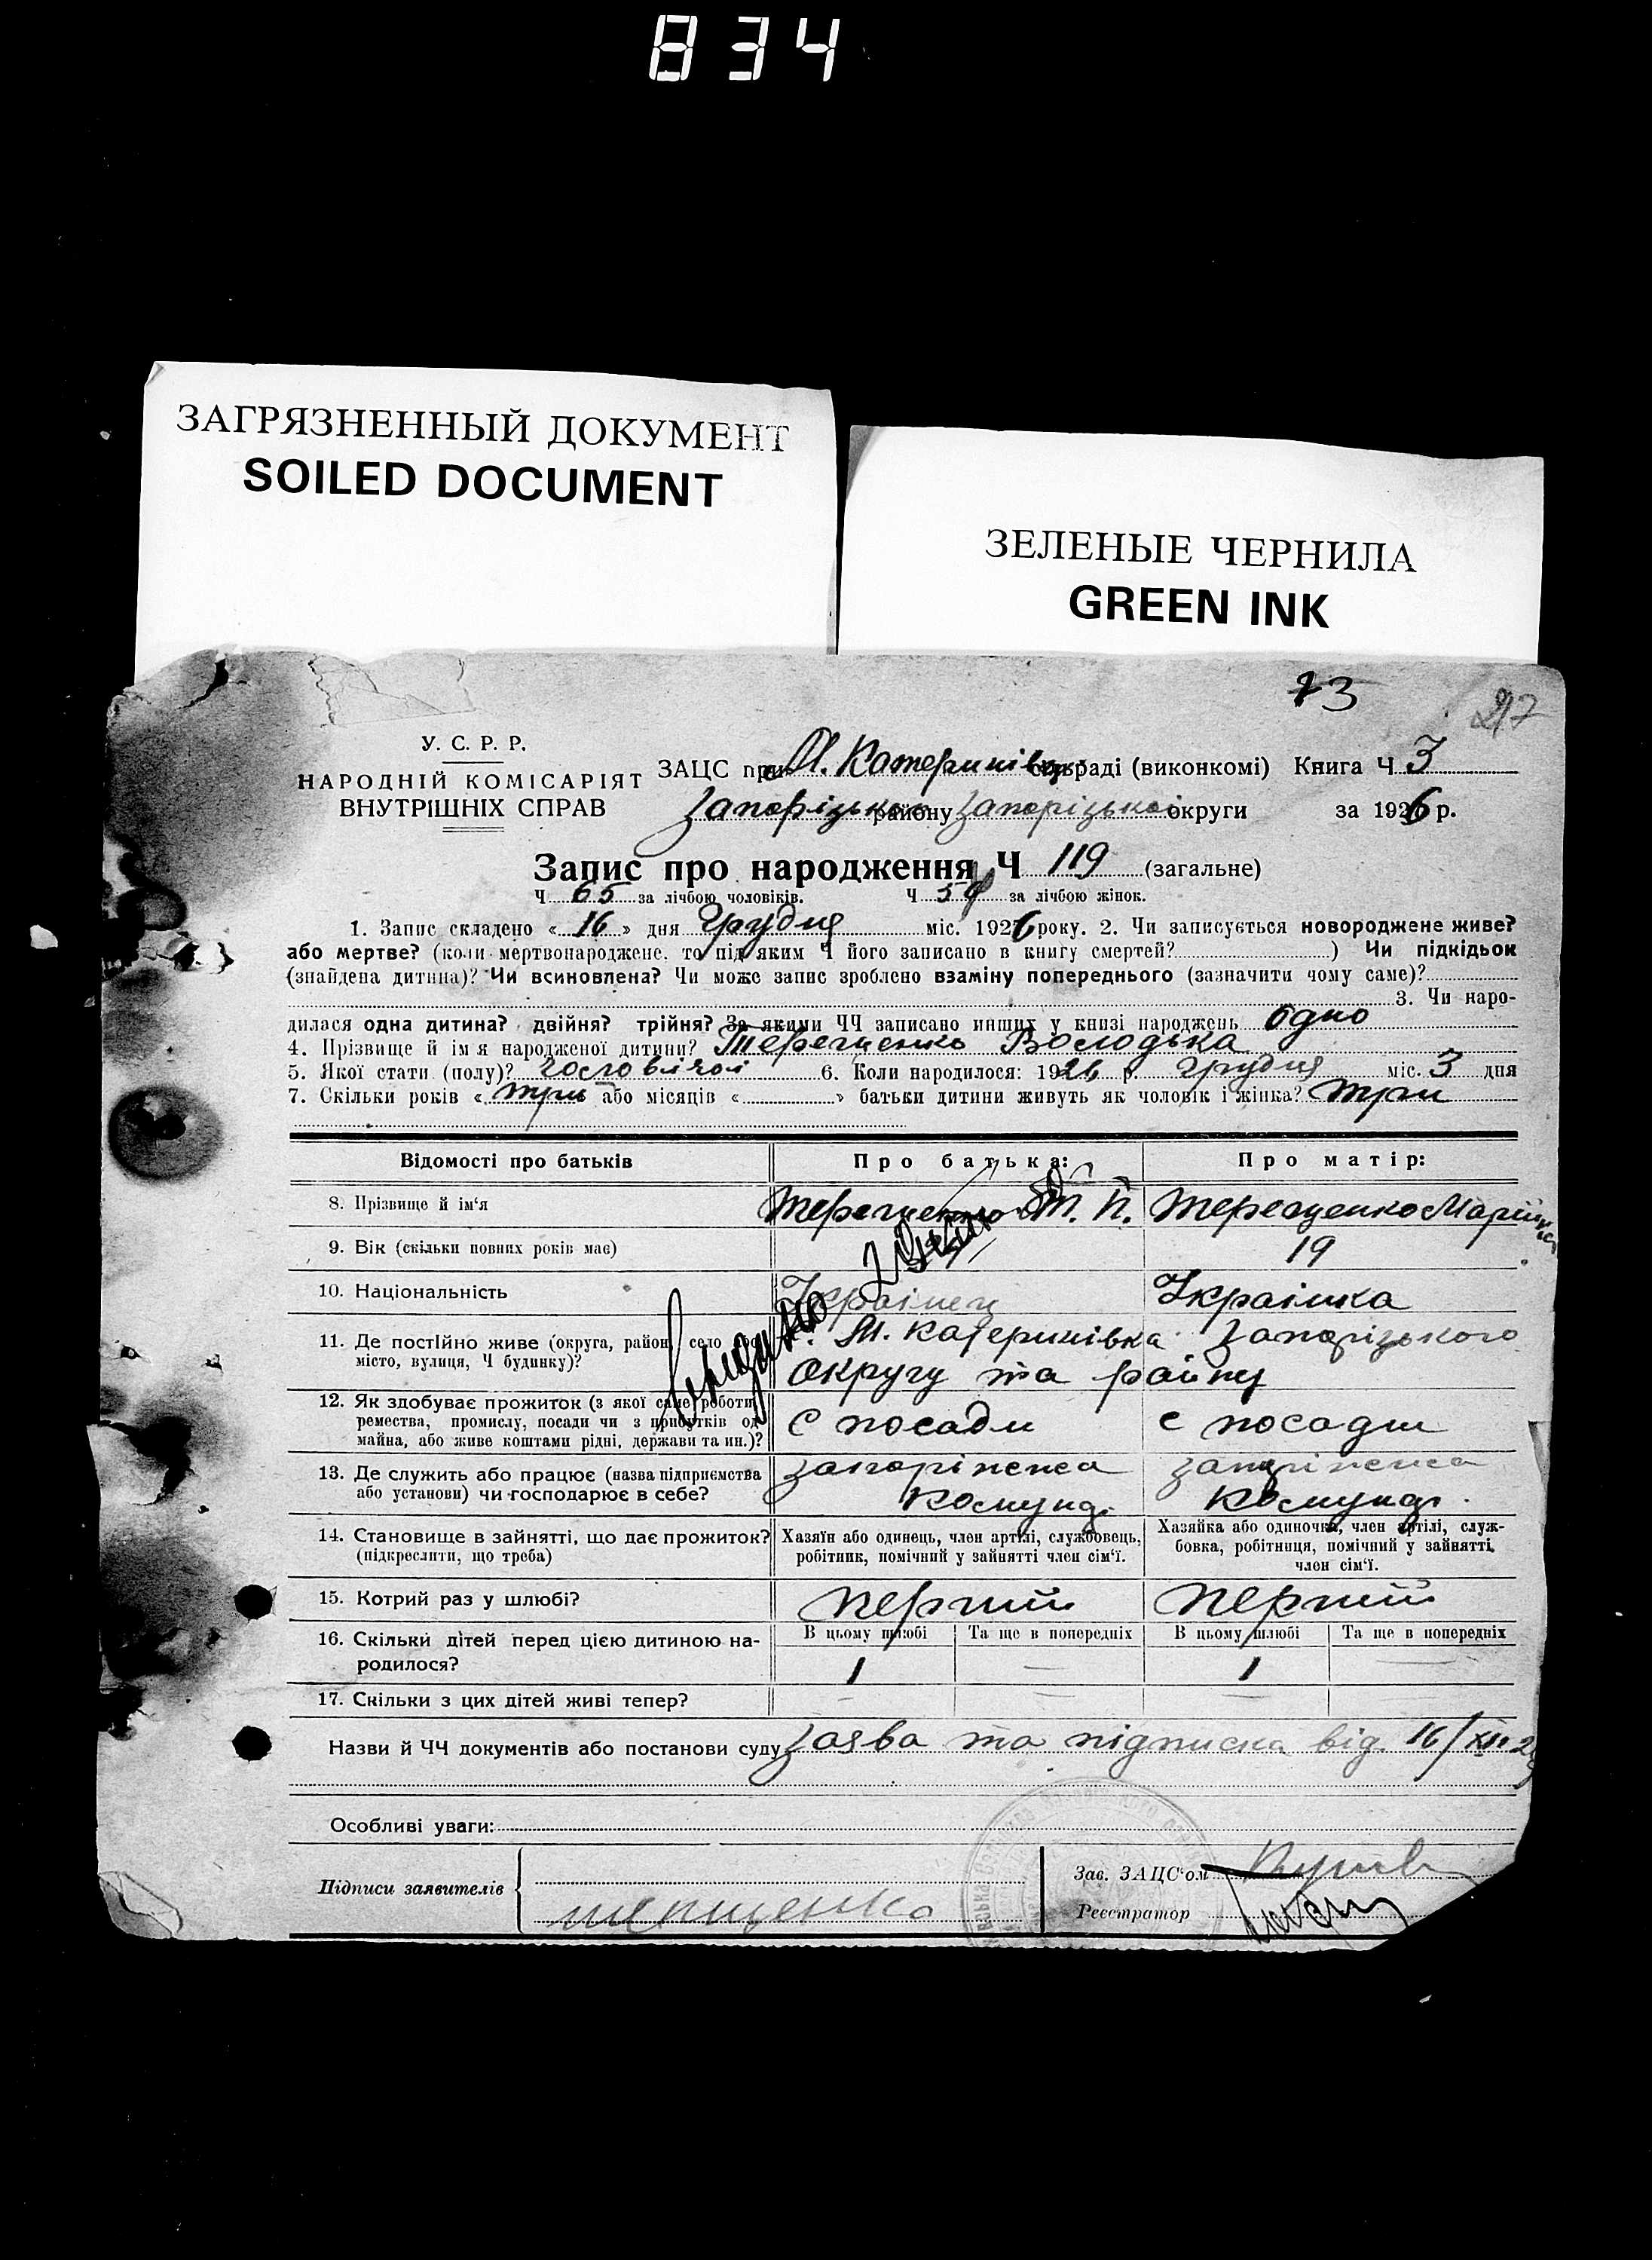 834
ЗАГРЯЗНЕННЫЙ ДОКУМЕНТ
SOILED DOCUMENT
ЗЕЛЕНЫЕ ЧЕРНИЛА
GREEN INK
73
217
У. С. Р. Р.
НАРОДНІЙ КОМІСАРІЯТ
ВНУТРІШНІХ СПРАВ
ЗАЦС при М. Катеринівськ сільраді (виконкомі) Книга Ч 3
Запорізького району Запорізької округи за 1926 р.
Запис про народження Ч 119 (загальне)
Ч 65 за лічбою чоловіків. Ч 54 за лічбою жінок.
1. Запис складено « 16 » дня Грудня міс. 1926 року. 2. Чи записується новороджене живе?
або мертве? (коли мертвонароджене, то під яким Ч його записано в книгу смертей? ) Чи підкідьок
(знайдена дитина)? Чи всиновлена? Чи може запис зроблено взаміну попереднього (зазначити чому саме)?
3. Чи наро-
дилася одна дитина? двійня? трійня? За якими ЧЧ записано инших у книзі народжень одно
4. Прізвище й ім я народженої дитини? Терещенко Володька
5. Якої стати (полу)? чоловічої 6. Коли народилося: 1926 р. Грудня міс. 3 дня
7. Скільки років « три або місяців « » батьки дитини живуть як чоловік і жінка? три
Відомості про батьків Про батька: Про матір:
8. Прізвище й ім‘я Терещенко Т. П. Терещенко Марія
9. Вік (скільки повних років має) 19
10. Національність Українец Українка
11. Де постІйно живе (округа, район, село або М. Катеринівка Запорізького
місто, вулиця, Ч будинку)? округу та району
12. Як здобуває прожиток (з якої саме роботи,
ремества, промислу, посади чи з прибутків од с посади с посади
майна, або живе коштами рідні, держави та ин.)?
13. Де служить або працює (назва підприємства
або установи) чи господарює в себе?
14. Становище в зайнятті, що дає прожиток? Хазяїн або одинець, член артілі, службовець, Хазяйка або одиночка, член артілі, служ-
(підкреслити, що треба) робітник, помічний у зайнятті член сім‘ї. бовка, робітниця, помічний у зайнятті,
член сім‘ї.
15. Котрий раз у шлюбі? перший перший
16. Скільки дітей перед цією дитиною на- В цьому шлюбі Та ще в попередніх В цьому шлюбі Та ще в попередніх
родилося? 1 — 1 —
17. Скільки з цих дітей живі тепер? — — — —
Назви й ЧЧ документів або постанови суду Заява та підписка від 16/XII 26
Особливі уваги:
Підписи заявителів Зав. ЗАЦС‘ом
Реєстратор